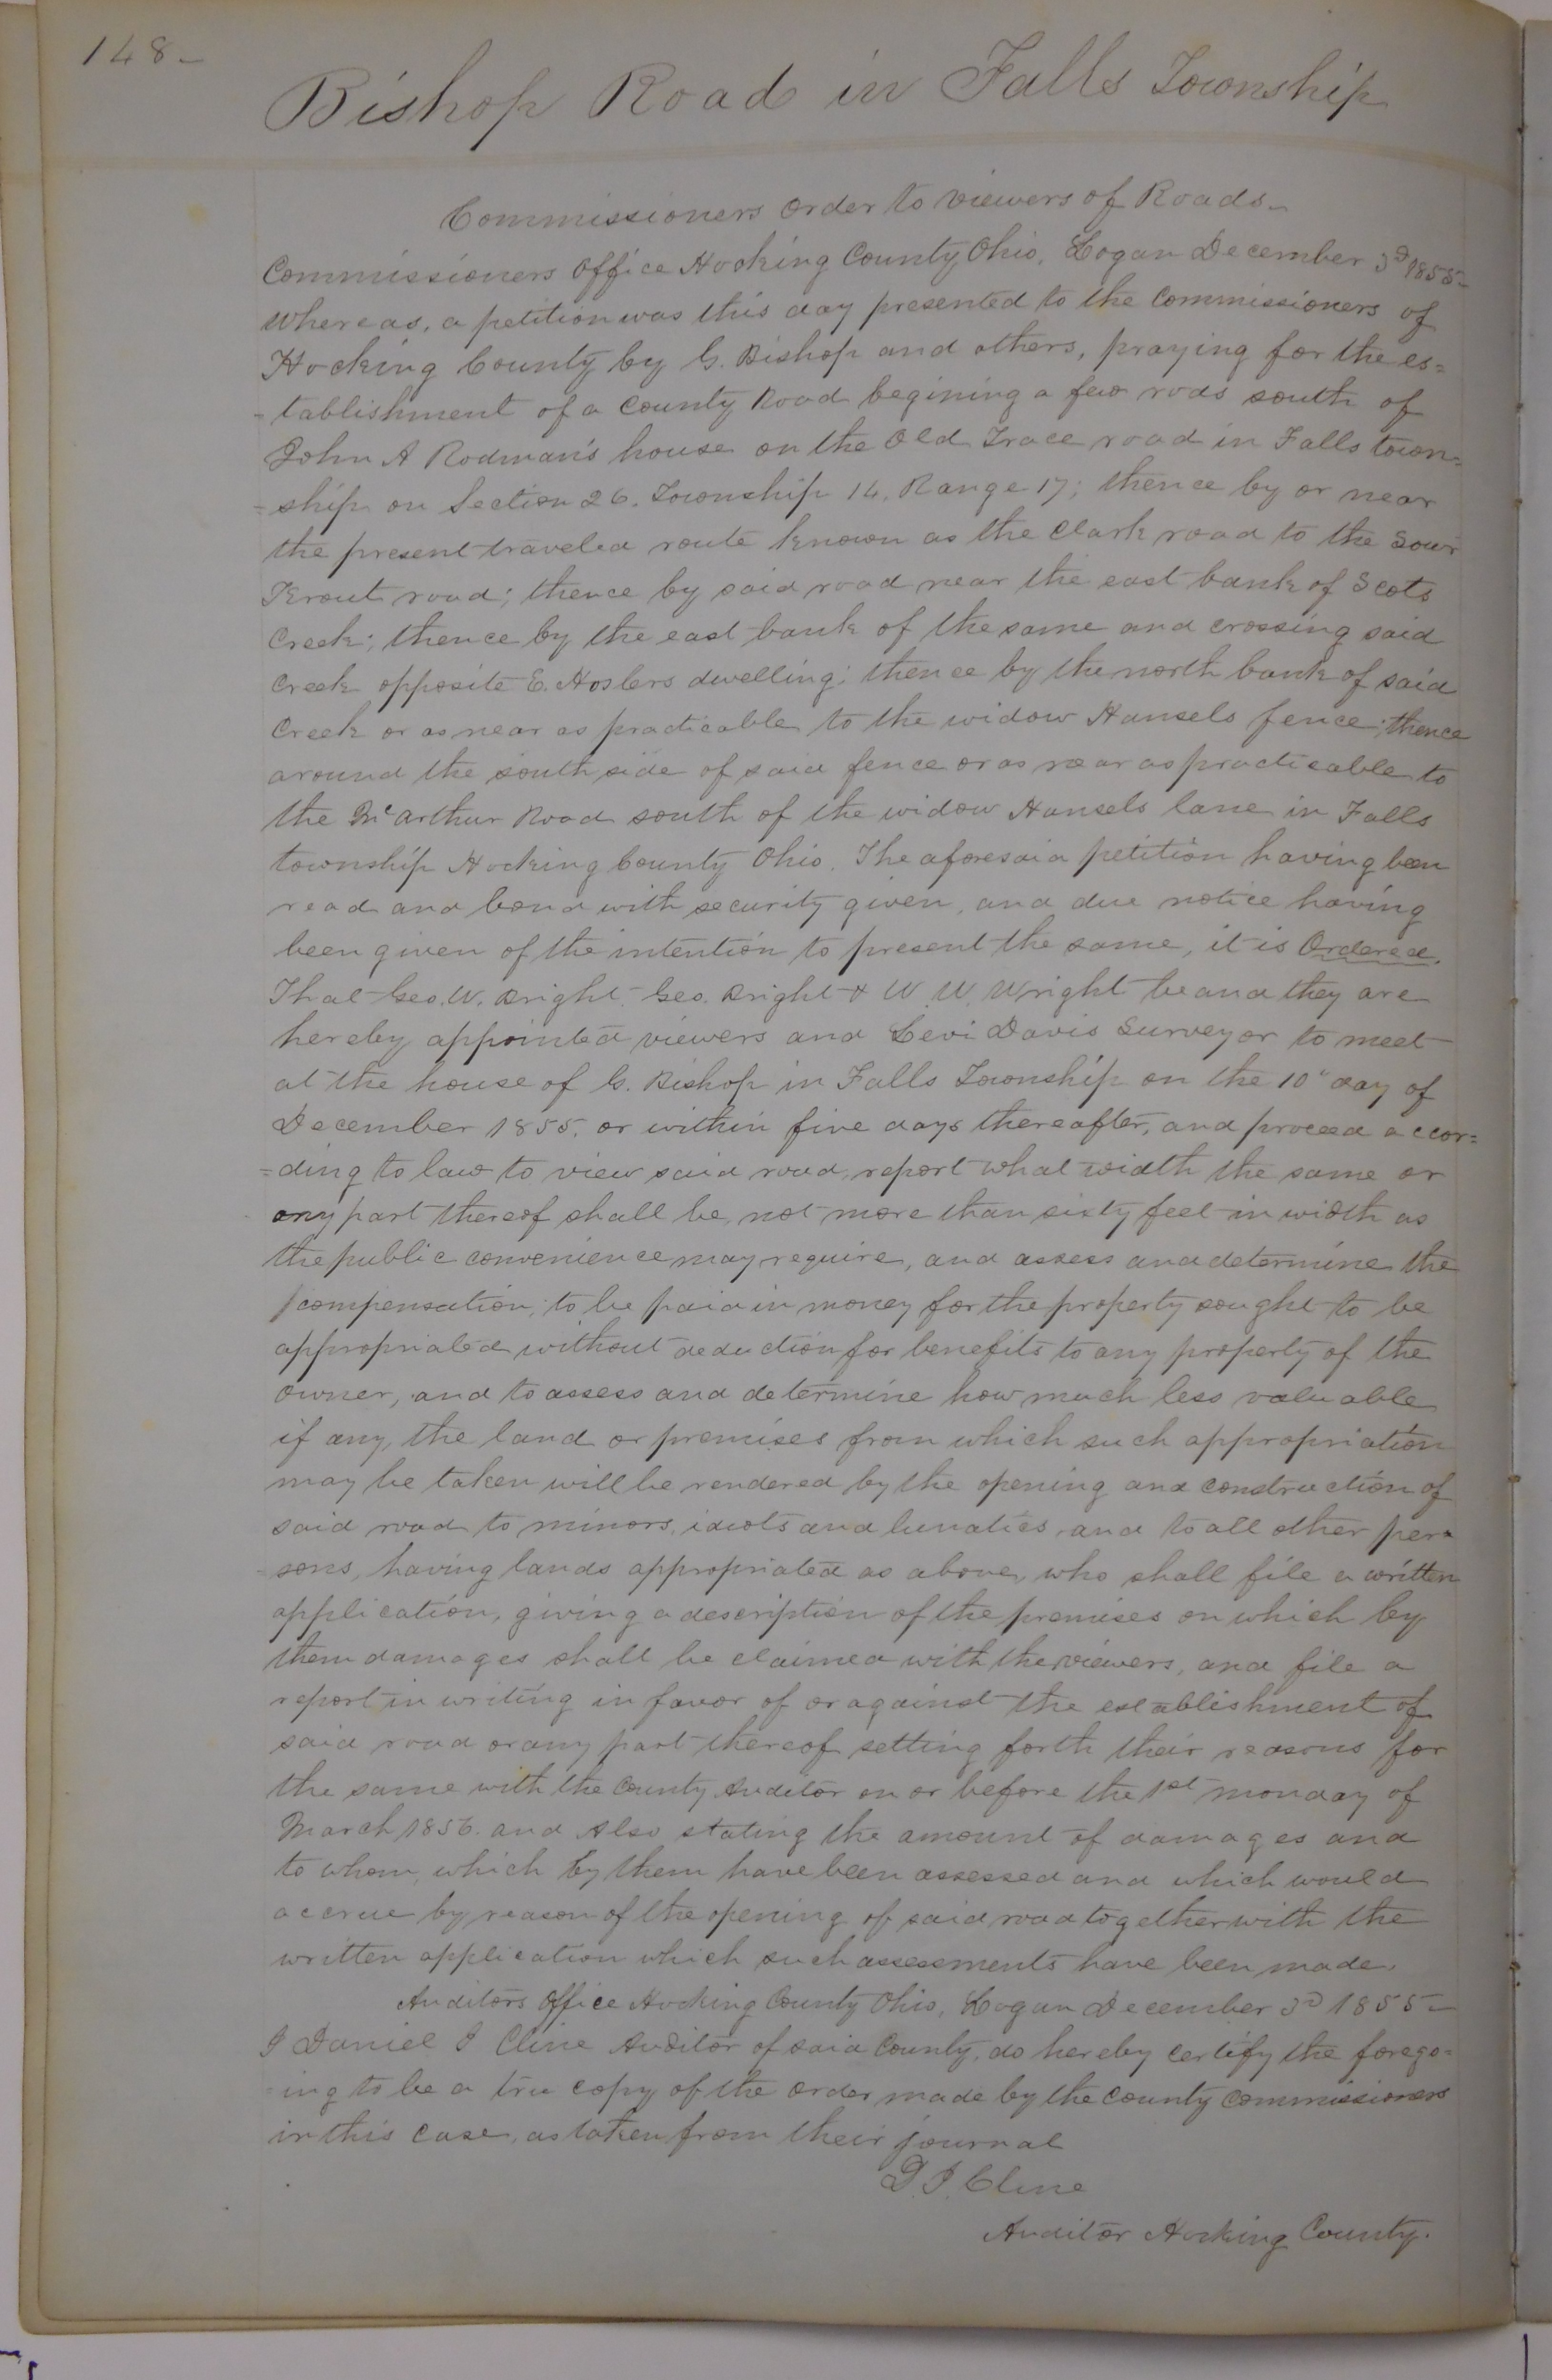 148-
Bishop Road in Falls Township
Commissioners Order to Viewers of Roads-
Commissioners Office Hocking County Ohio, Logan December 3d 1855-
Whereas, a petition was this day presented to the Commissioners of
Hocking County by G. Bishop and others, praying for the es=
-tablishment of a County Road begining a few rods south of
John A Rodman's house on the Old Trace road in Falls town=
=ship on Section 26. Township 14, Range 17; thence by or near
the present traveled route known as the Clark road to the Sour
Krout road; thence by said road near the east bank of Scots
Creek; thence by the east bank of the same and crossing said
Creek opposite E. Hoslers dwelling; thence by the north bank of said
Creek or as near as practicable to the widow Hansels fence; thence
around the south side of said fence or as near as practicable to
the McArthur Road south of the widow Hansels lane in Falls
township Hocking County Ohio. The aforesaid petition having been
read and bond with security given, and due notice having
been given of the intention to present the same, it is Ordered,
That Geo. W. Bright, Geo. Bright & W. W. Wright be and they are
hereby appointed viewers and Levi Davis Surveyor to meet
at the house of G. Bishop in Falls Township on the 10" day of
December 1855, or within five days thereafter, and proceed accor=
=ding to law to view said road, report what width the same or
any part thereof shall be, not more than sixty feet in width as
the public convenience may require, and assess and determine the
compensation, to be paid in money for the property sought to be
appropriated without deduction for benefits to any property of the
owner, and to assess and determine how much less valuable
if any, the land or premises from which such appropriation
may be taken will be rendered by the opening and construction of
said road to minors, idiots and lunatics, and to all other per=
=sons, having lands appropriated as above, who shall file a written
application, giving a description of the premises on which by
them damages shall be claimed with the viewers, and file a
report in writing in favor of or against the establishment of
said road or any part thereof setting forth their reasons for
the same with the County Auditor on or before the 1st monday of
March 1856. and Also stating the amount of damages and
to whom, which by them have been assessed and which would
accrue by reason of the opening of said road together with the
written application which such assessments have been made.
Auditors Office Hocking County Ohio, Logan December 3d 1855-
I Daniel J Cline Auditor of said County, do hereby certify the forego=
=ing to be a tru copy of the order made by the County Commissioners
in this case, as taken from their journal
D. J. Cline
Auditor Hocking County.